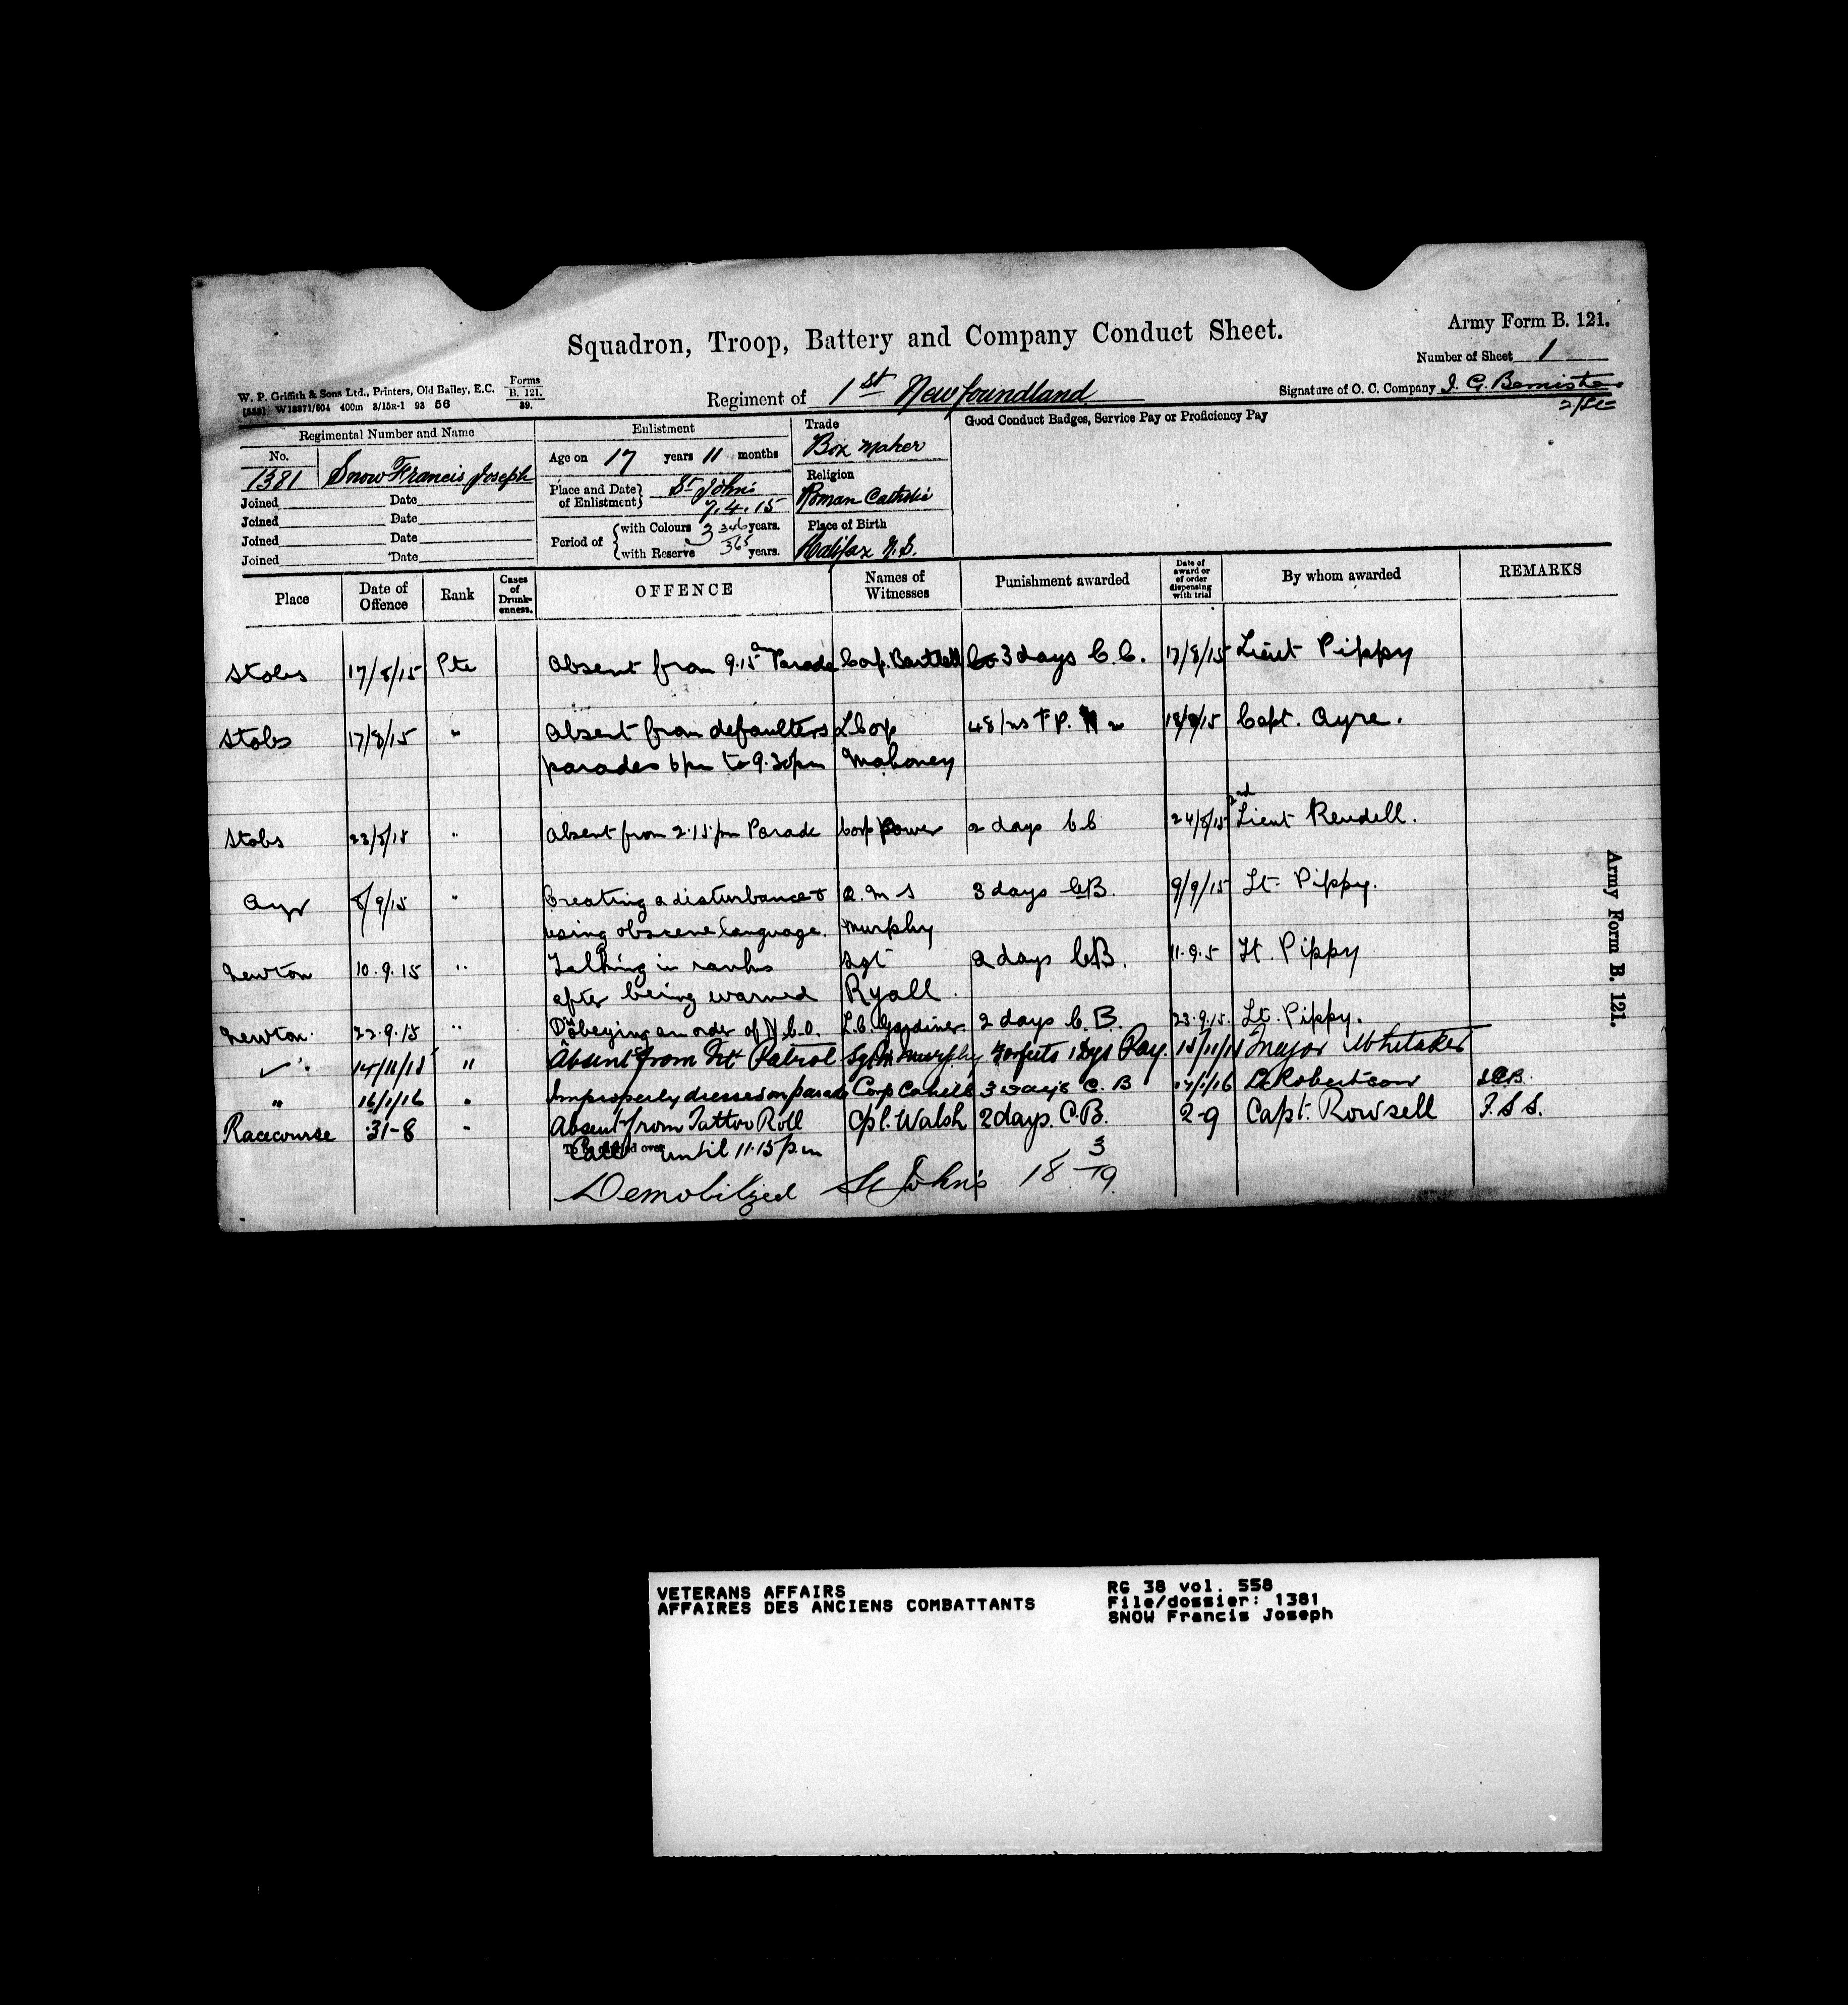 Squadron, Troop, Battery and Company Conduct Sheet.
Army Form B. 121.
Number of Sheet 1
W. P. Griffith & Sons Ltd., Printers, Old Bailey, E.C. Forms B. 121. 39.
[533] W13871/604 400m 3/15R-1 93 56
Regiment of 1st Newfoundland
Signature of O. C. Company J. G. Bemister
Regimental Number and Name
Enlistment
Trade
Good Conduct Badges, Service Pay or Proficiency Pay
No.
1381 Snow Francis Joseph
Age on 17 years 11 months
Box maker
Religion
Roman Catholic
Place and Date of Enlistment St Johns 7.4.15
Place of Birth
Halifax N.S.
Joined Date
Joined Date
Joined Date
Joined Date
Period of with Colours 3 346/365 years.
with Reserve years.
Place Date of Offence Rank Cases of Drunk-enness. OFFENCE Names of Witnesses Punishment awarded Date of award or of order dispensing with trial By whom awarded REMARKS
Stobs 17/8/15 Pte Absent from 9.15 am Parade Corp. Bartlett 3 days C.C. 17/8/15 Lieut Pippy
Stobs 17/8/15 " Absent from defaulters L Corp 48 hrs F.P. N 2 18/8/15 Capt. Ayre.
parades 6pm to 9.30pm Mahoney
Stobs 23/8/15 " Absent from 2.15 pm Parade Corp Power 2 days C C 24/8/15 2nd Lieut Rendell.
Ayr 8/9/15 " Creating a disturbance & Q.M S 3 days C.B. 9/9/15 Lt. Pippy.
using obscene language. Murphy
Newton 10.9.15 " Talking in ranks Sgt 2 days C.B. 11.9.5 Lt. Pippy
after being warned Ryall.
Newton. 22.9.15 " Disobeying an order of N.C.O. L.C. Gardiner. 2 days C.B. 23.9.15. Lt. Pippy.
" 14/11/15 " Absent from Patrol Murphy Forfeits 1 Dys Pay. 15/11/15 Major Whitaker
" 16/1/16 " Improperly dressed on parade Corp Cahill 3 Days C. B 17/1/16 Lt Robertson
Racecourse 31-8 " Absent from Tattoo Roll Cpl. Walsh 2 days. C.B. 2-9 Capt. Rowsell F.S S.
To be carried over
Call until 11.15 pm
Demobilized St John's 18 3/19.
Army Form B. 121.
VETERANS AFFAIRS
AFFAIRES DES ANCIENS COMBATTANTS
RG 38 vol. 558
File/dossier: 1381
SNOW Francis Joseph